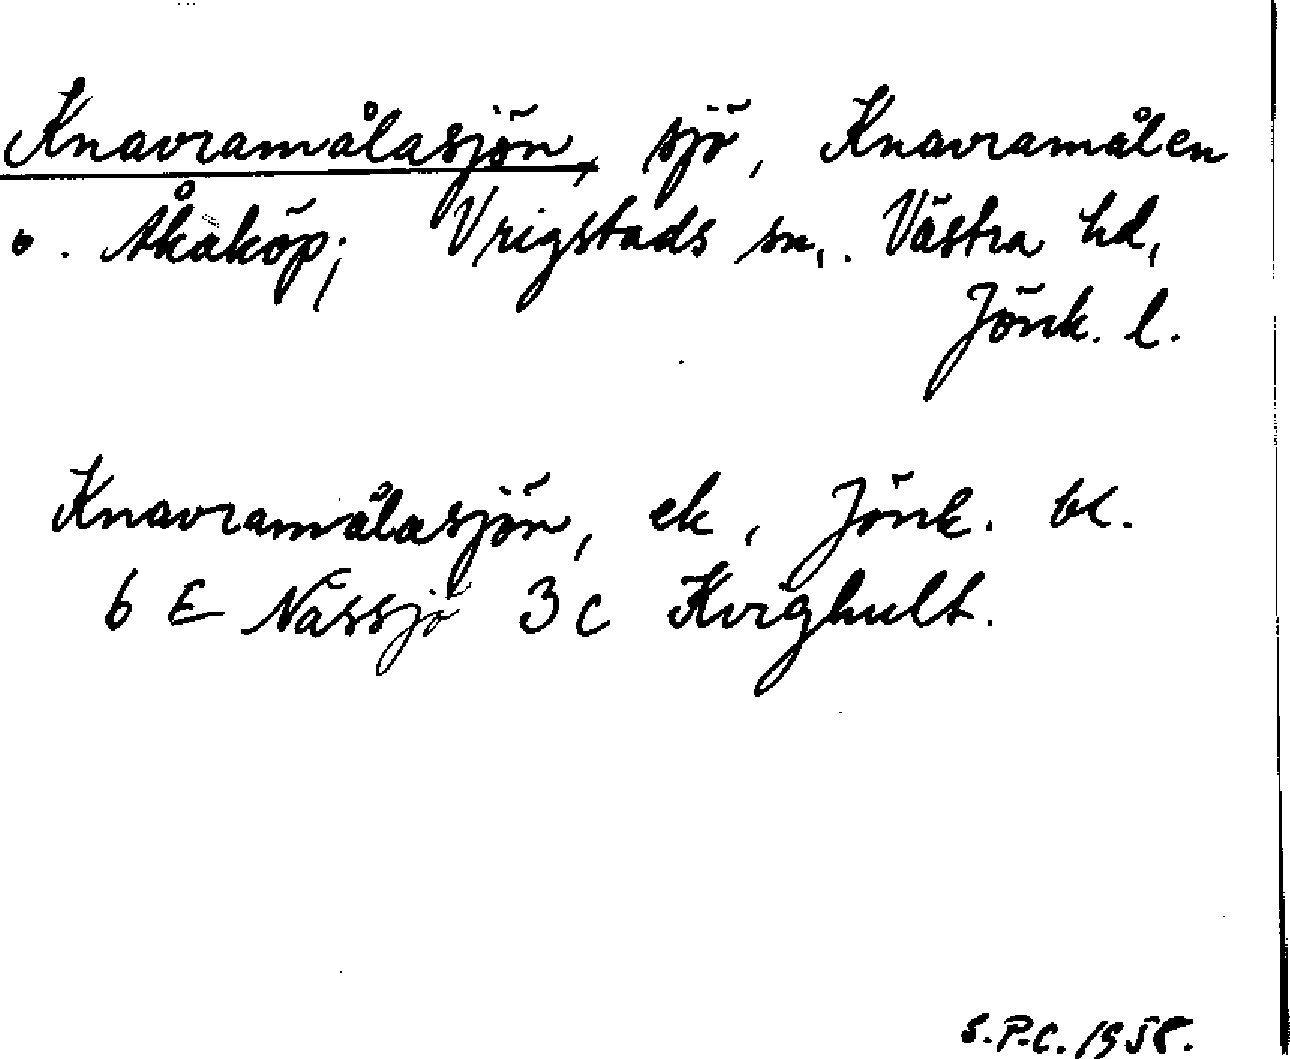 Knavramålasjön, sjö, Knavramålen
o. Åkaköp; Vrigstads sn,. Västra hd,
Jönk. l.
Knavramålasjön, ek, Jönk. bl.
6 E Nässjö 3 c Kvighult.
S.P.C. 1958.